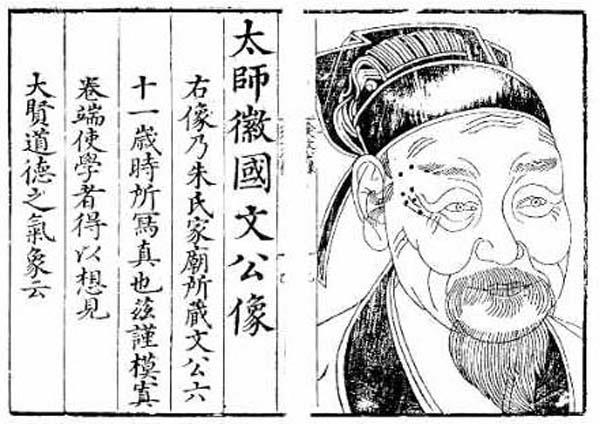 太師徽國文公像
右像乃朱氏家廟所藏文公六
十一歲時所寫真也茲謹模寘
卷端使學者得以想見
大賢道德之氣象云